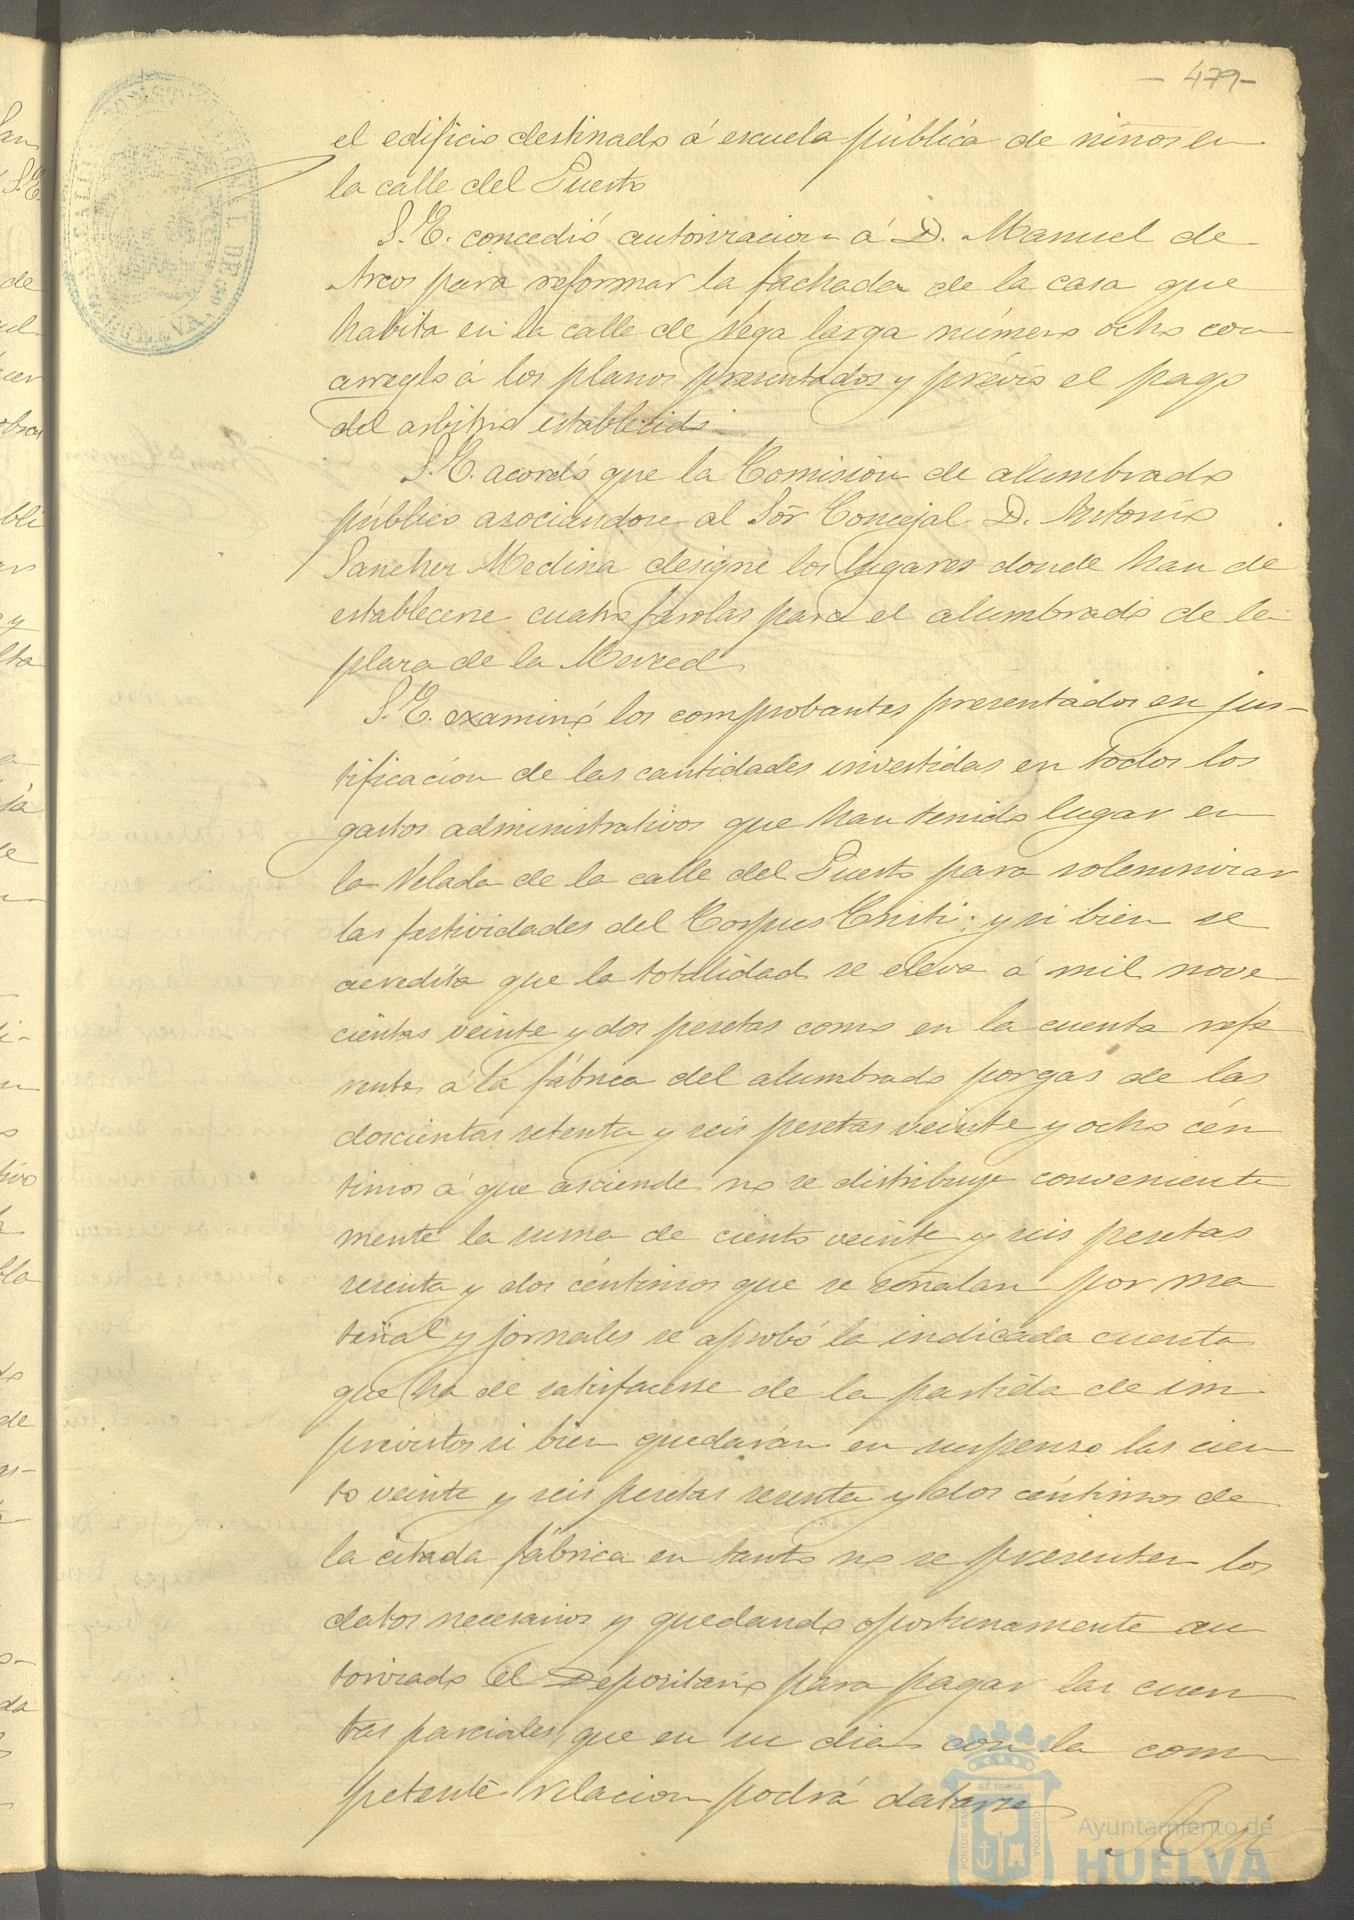 - 479 -
el edificio destinado á escuela pública de niños en
la calle del Puerto
S. E. concedió autorizacion á D. Manuel de
Arcos para reformar la fachada de la casa que
habita en la calle de Vega larga número ocho con
arreglo á los planos presentados y prévio el pago
del arbitrio establecido.
S. E. acordó que la Comision de alumbrado
público asociandose al Sôr Concejal D. Antonio
Sanchez Medina designe los lugares donde han de
establecerse cuatro farolas para el alumbrado de la
plaza de la Merced
S. E. examinó los comprobantes presentados en jus-
tificacion de las cantidades invertidas en todos los
gastos administrativos que han tenido lugar en
la Velada de la calle del Puerto para solemnizar
las festividades del Corpus Cristi; y si bien se
acredita que la totalidad se eleva á mil nove
cientas veinte y dos pesetas como en la cuenta refe
rente á la fábrica del alumbrado por gas de las
doscientas setenta y seis pesetas veinte y ocho cén
timos á que asciende no se distribuye conveniente
mente la suma de ciento veinte y seis pesetas
sesenta y dos céntimos que se señalan por ma
terial y jornales se aprobó la indicada cuenta
que ha de satisfacerse de la partida de im
previstos si bien quedarán en suspenso las cien
to veinte y seis pesetas sesenta y dos céntimos de
la citada fábrica en tanto no se presenten los
datos necesarios y quedando oportunamente au
torizado el Depositario para pagar las cuen
tas parciales, que en su dia con la com
petente relacion podrá datarse
Ayuntamiento de
HUELVA